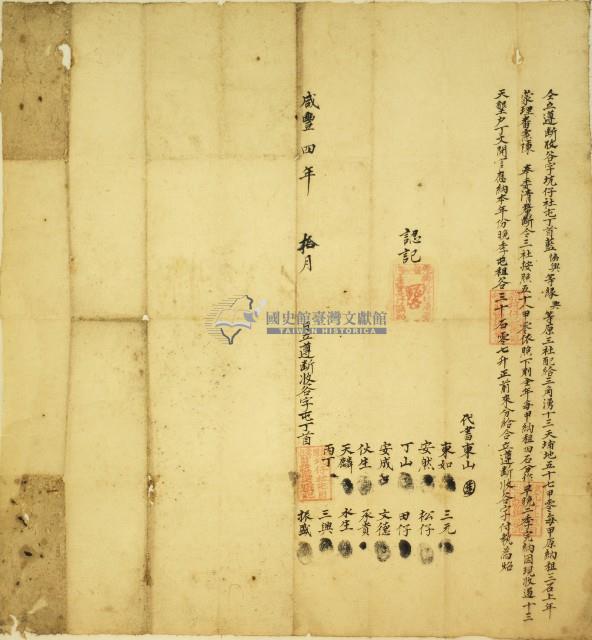 仝立遵斷收谷字坑仔社屯丁首藍協興等緣興等原三社配給三角湧十三天埔地五十七甲零每甲原納租三石上年
蒙理番憲陳 奉委清釐斷令三社按照五十八甲零依照下則全年每甲納租四石分作早晚二季完納因現收過十三
天墾戶丁文開言應納本年份晚季屯租谷三十石零七升正前來分給合立遵斷收谷字付執為炤
認記
代書東山
東如
三元
安然
松仔
丁山
田仔
安成
文德
伙生
承貴
天麟
水生
丙丁
三興
振盛
咸豐四年 拾月 日立遵斷收谷字屯丁首
國史館臺灣文獻館
TAIWAN HISTORICA